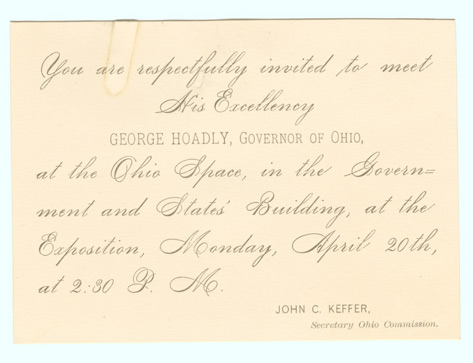 You are respectfully invited to meet
His Excellency
GEORGE HOADLY, GOVERNOR OF OHIO,
at the Ohio Space, in the Govern=
ment and States' Building, at the
Exposition, Monday, April 20th,
at 2:30 P. M.
JOHN C. KEFFER,
Secretary Ohio Commission.